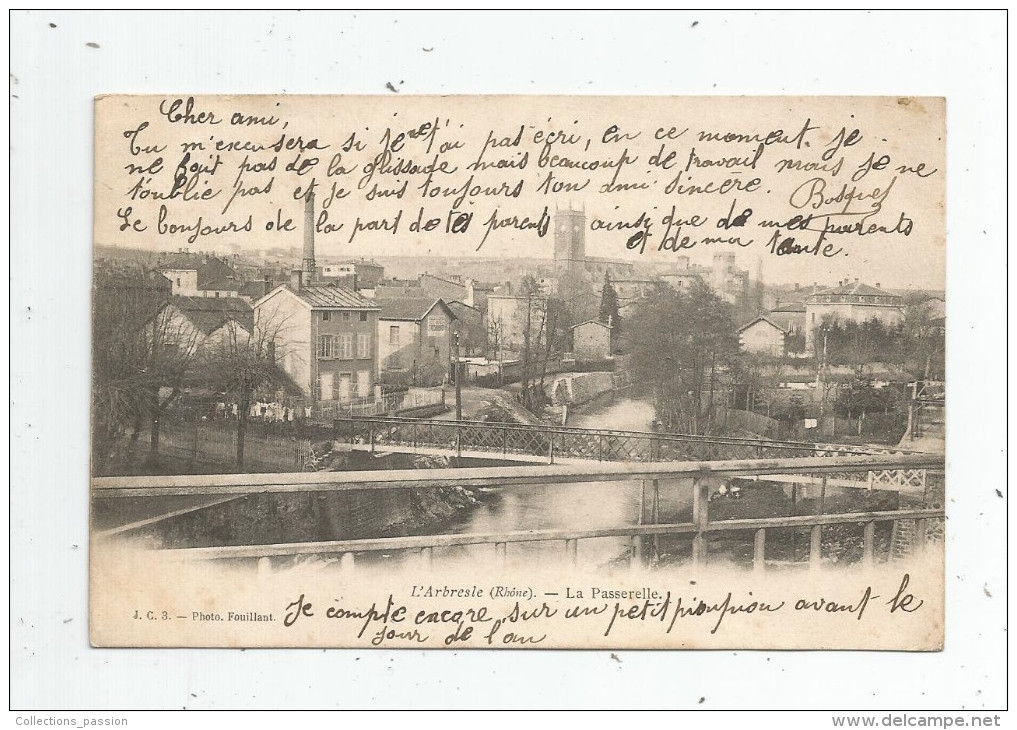 Cher ami,
Tu m'excusera si je ne t'ai pas écri, en ce moment. je
ne fait pas de la glissade mais beaucoup de travail mais je ne
t'oublie pas et je suis toujours ton ami sincère.
Bosquet
Le bonjours de la part de tes parents ainsi que de mes parents
et de ma tante.
L'Arbresle (Rhône). — La Passerelle.
J. C. 3. — Photo. Fouillant.
Je compte encore sur un petit pioupiou avant le
jour de l'an
Collections_passion
www.delcampe.net